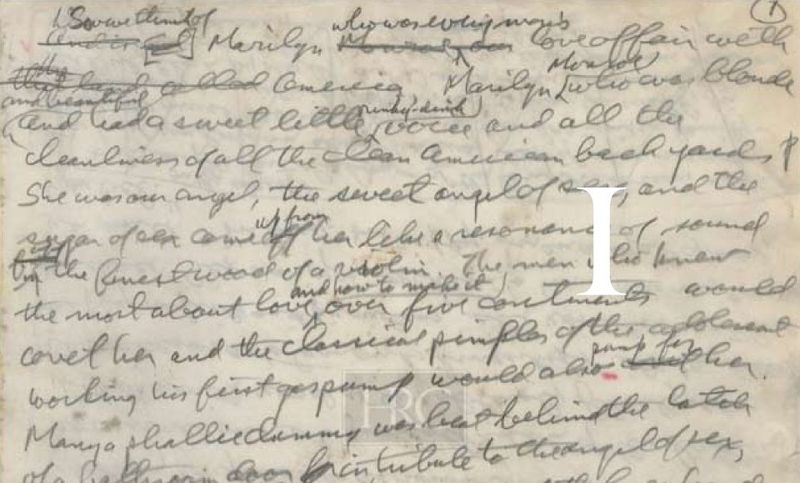 1
So we think of who was every man's
Marilyn love affair with
America, Marilyn Monroe who was blonde
and beautiful
and had a sweet little rinky-dink voice and all the
cleanliness of all the clean American backyards
She was our angel, the sweet angel of sex, and the
sugar of sex came up from her like a resonance of sound
in the finest wood of a violin. The men who knew
the most about love and how to make it over five continents would
covet her and the classical pimples of the adolescent
working his first gas pump would also pump for her.
HRC
Many a phallic was beat behind the latch
of a contribute to the angel of sex,
I